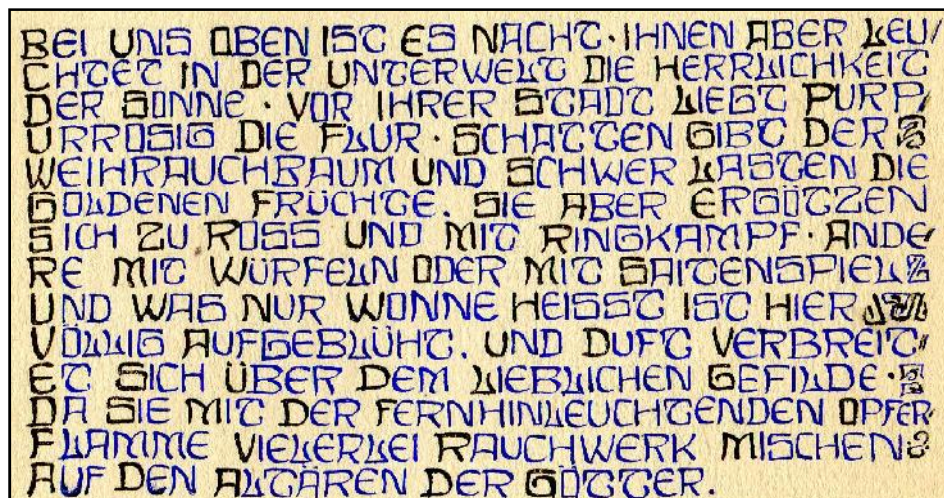 BEI UNS OBEN IST ES NACHT · IHNEN ABER LEU/
CHTET IN DER UNTERWELT DIE HERRLICHKEIT
DER SONNE · VOR IHRER STADT LIEGT PURP/
URROSIG DIE FLUR · SCHATTEN GIBT DER
WEIHRAUCHBAUM UND SCHWER LASTEN DIE
GOLDENEN FRÜCHTE. SIE ABER ERGÖTZEN
SICH ZU ROSS UND MIT RINGKAMPF · ANDE/
RE MIT WÜRFELN ODER MIT SAITENSPIEL
UND WAS NUR WONNE HEISST IST HIER
VÖLLIG AUFGEBLÜHT. UND DUFT VERBREIT//
ET SICH ÜBER DEM LIEBLICHEN GEFILDE ·
DA SIE MIT DER FERNHINLEUCHTENDEN OPFER/
FLAMME VIELERLEI RAUCHWERK MISCHEN
AUF DEN ALTÄREN DER GÖTTER.